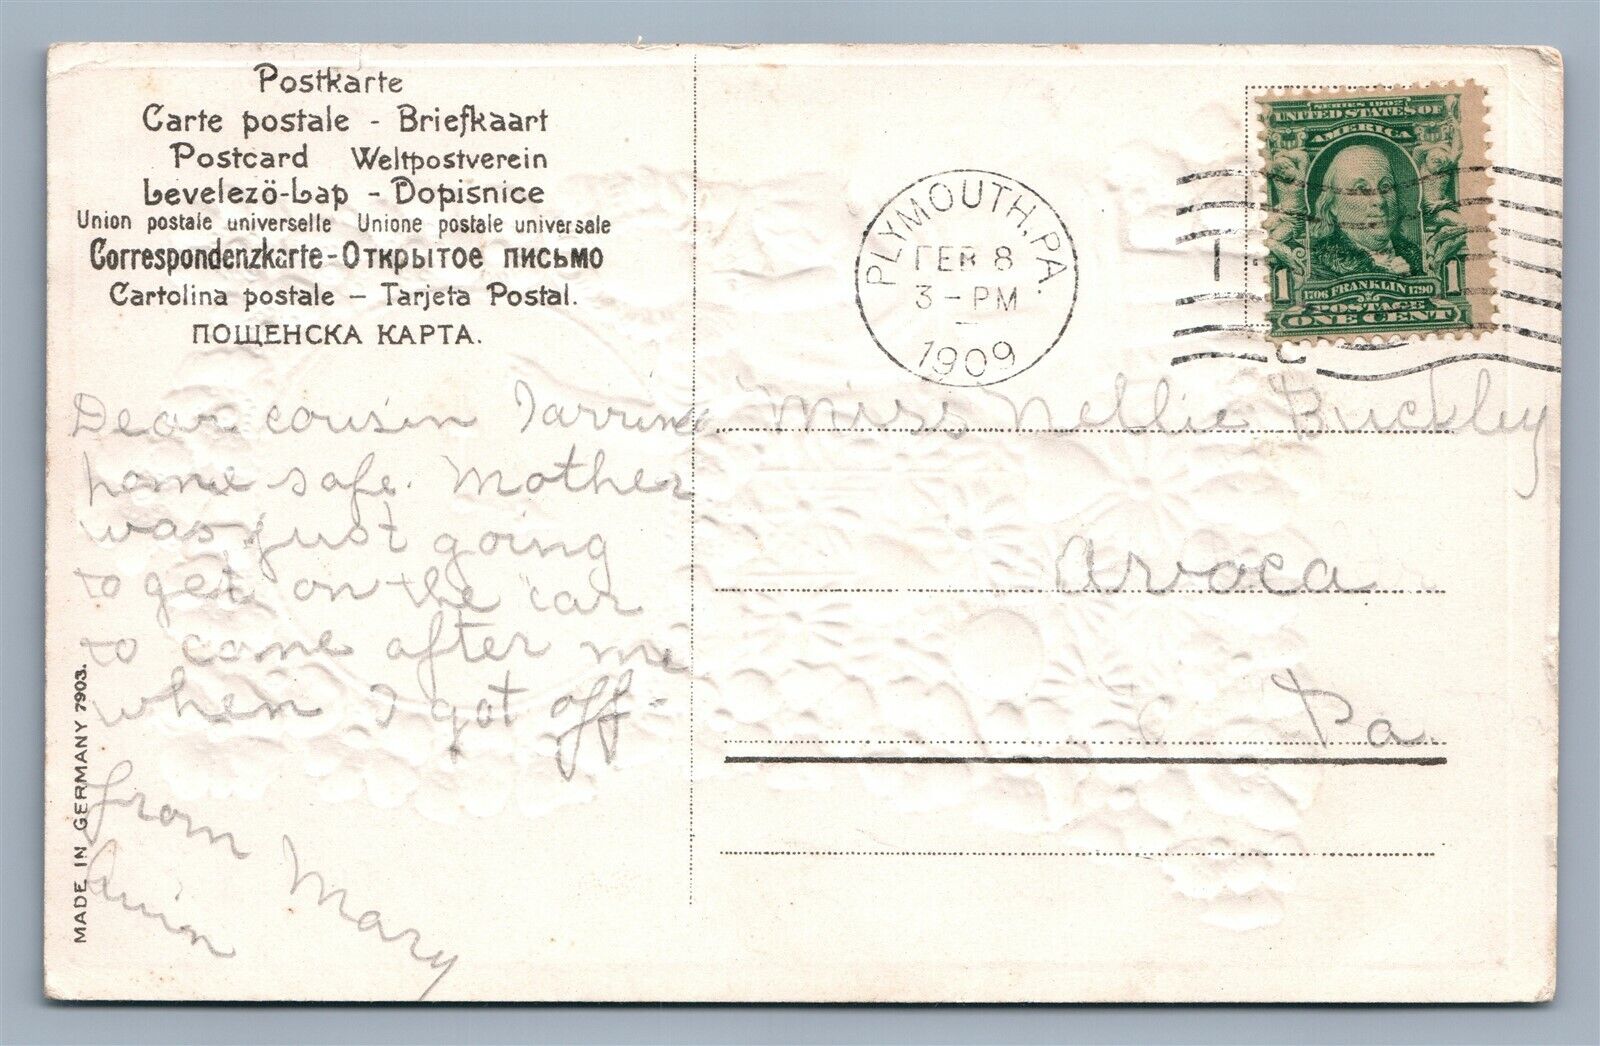 Postkarte
Carte postale - Briefkaart
Postcard Weltpostverein
Levelezö-Lap - Dopisnice
Union postale universelle Unione postale universale
Correspondenzkarte - Открытое письмо
Cartolina postale - Tarjeta Postal.
ПОЩЕНСКА КАРТА.
PLYMOUTH, PA.
FEB 8
3-PM
1909
1
SERIES 1902
UNITED STATES OF
AMERICA
1706 FRANKLIN 1790
1 1
POSTAGE
ONE CENT
Dear cousin
home safe. Mother
was just going
to get on the car
to come after me
when I got off.
from Mary
Miss Nellie Buckley
Avoca
Pa.
MADE IN GERMANY 7903.